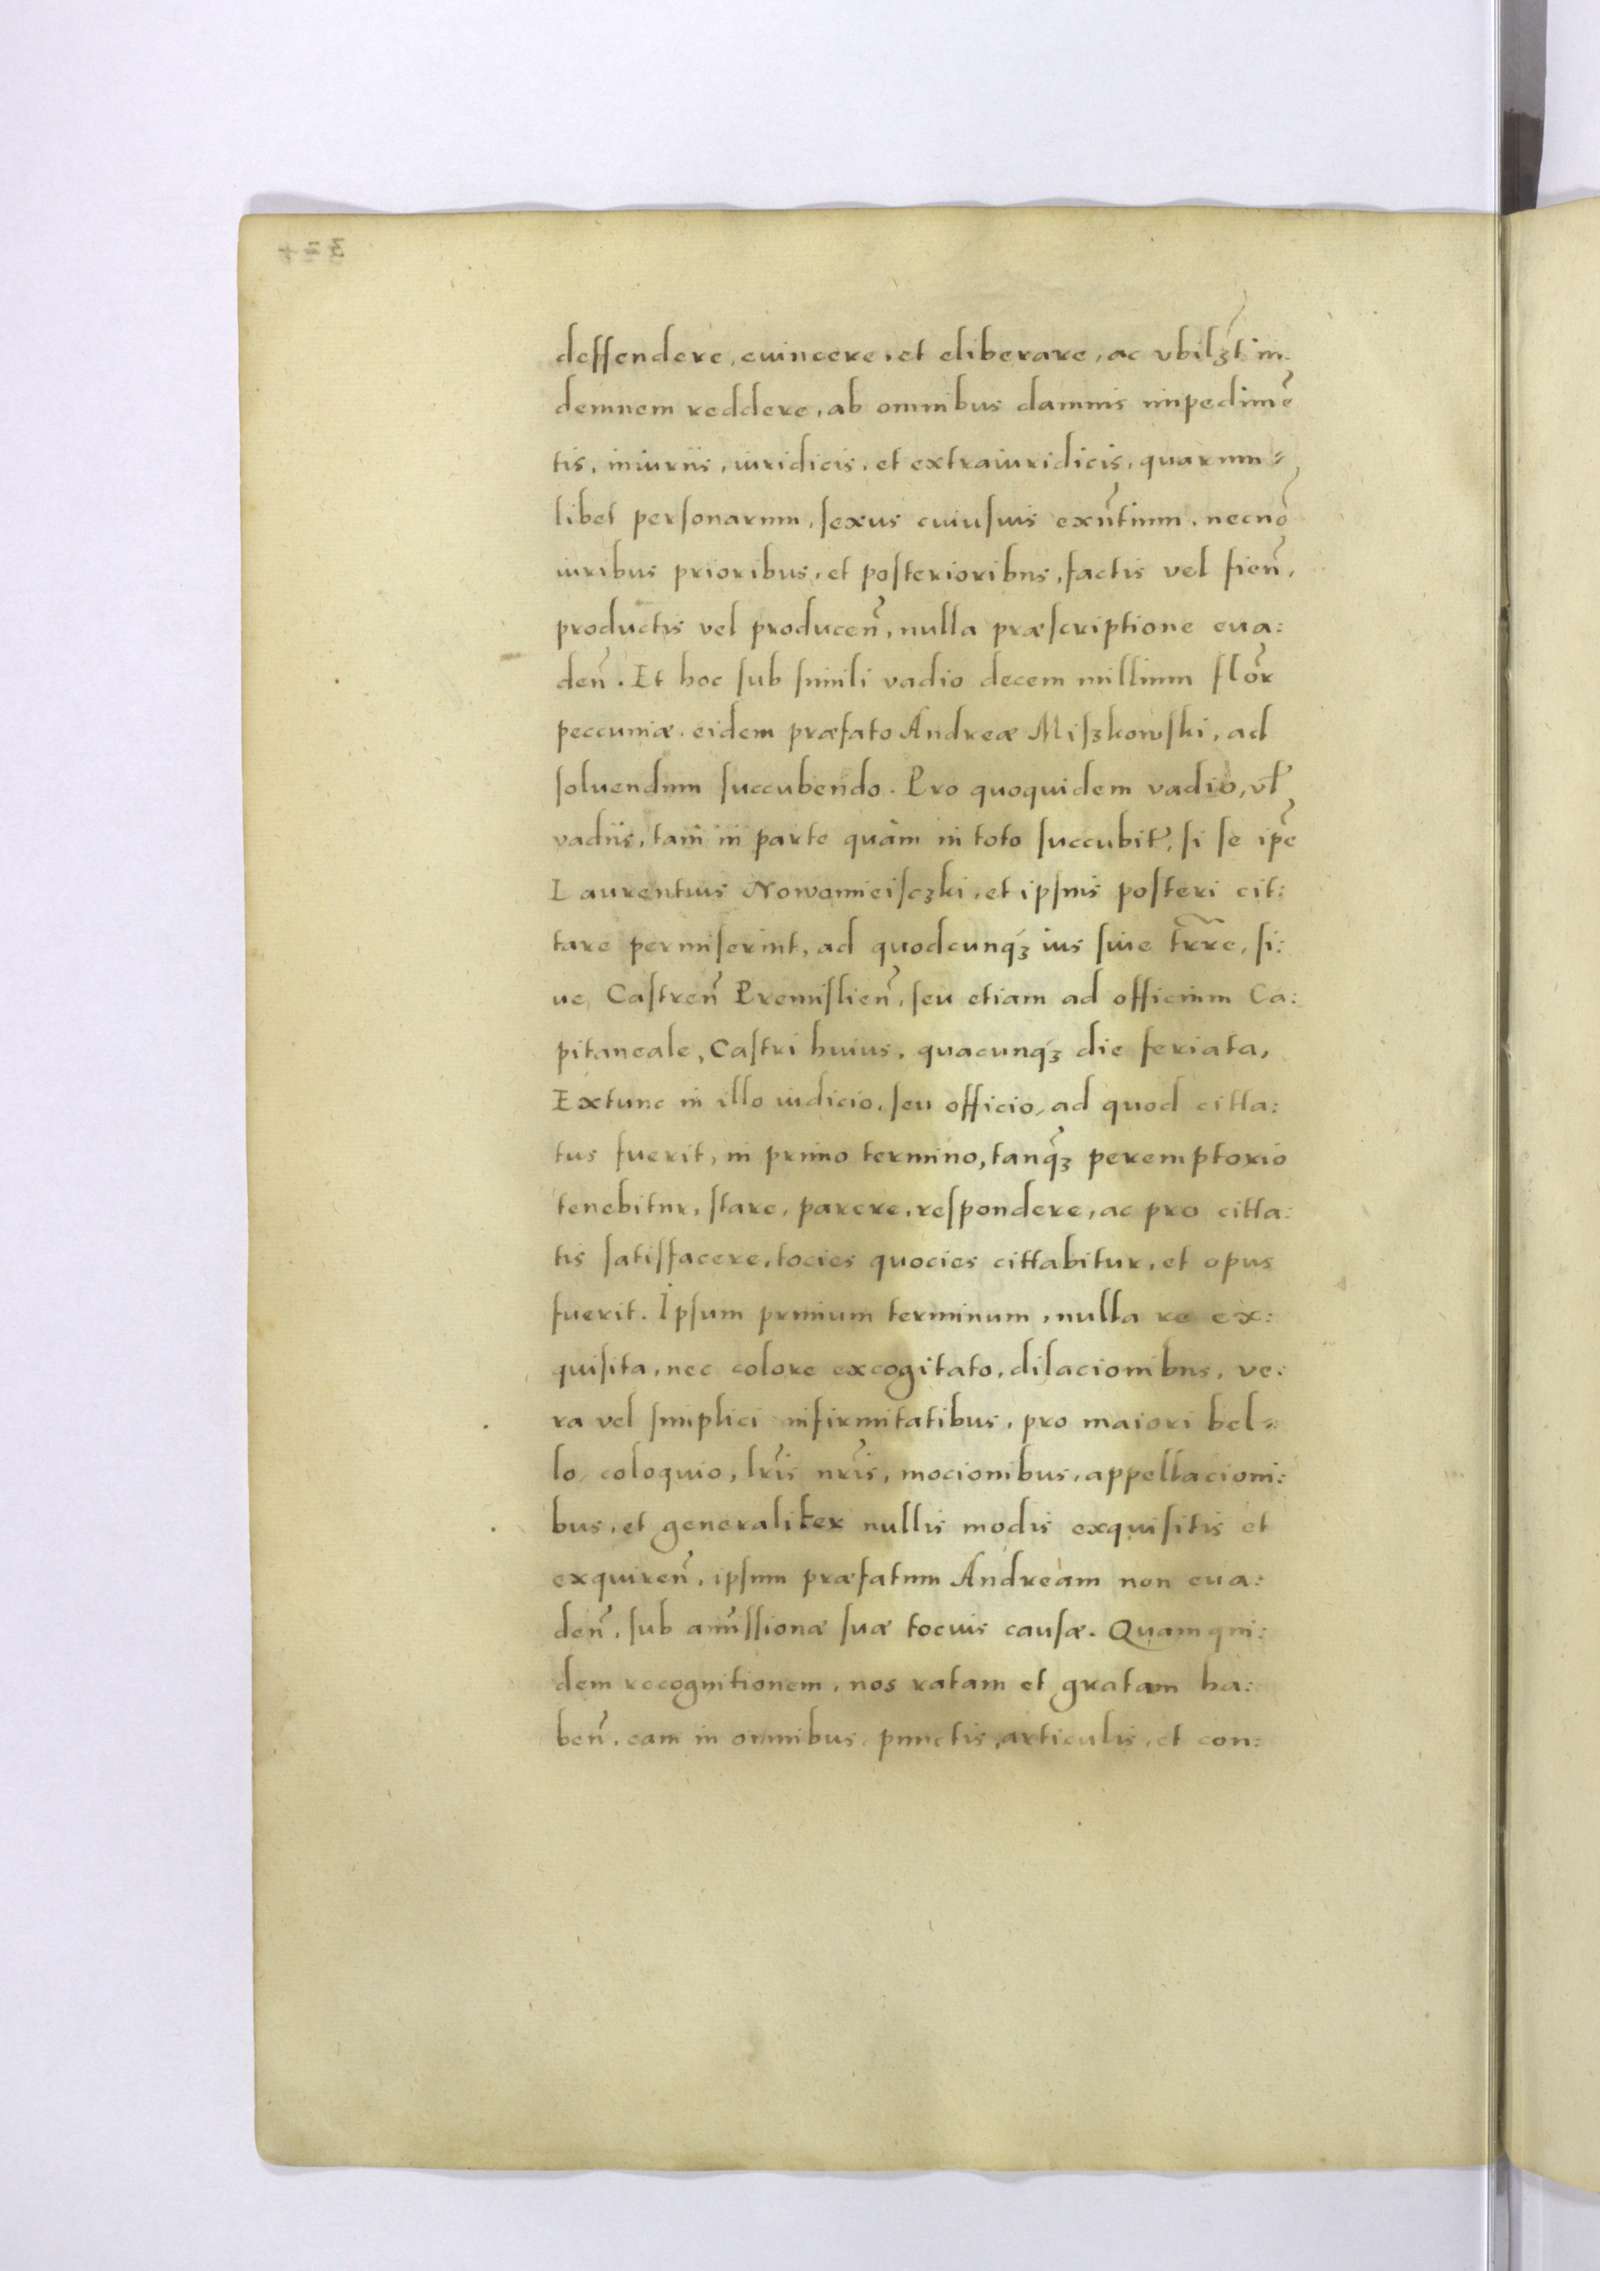 deffendere, euincere, et eliberare, ac vbilʒt in-
demnem reddere, ab omnibus damnis impedimẽ
tis, iniuriis, iuridicis, et extraiuridicis, quarum-
libet personarum, sexus cuiusuis exñtium, necnõ
iuribus prioribus, et posterioribus, factis vel fieñ,
productis vel produceñ, nulla præscriptione eua:
deñ. Et hoc sub simili vadio decem millium flor̃
peccuniæ eidem præfato Andreæ Misʒkowski, ad
soluendum succubendo. Pro quoquidem vadio, vł
vadiis, tam in parte quàm in toto succubiť, si se ip̃e
Laurentius Nowomieisczki, et ipsius posteri cit:
tare permiserint, ad quodcunqʒ ius siue tr̃rre, si:
ue Castreñ Premislieñ, seu etiam ad officium Ca:
pitaneale, Castri huius, quacunqʒ die feriata,
Extunc in illo iudicio, seu officio, ad quod citta:
tus fuerit, in primo termino, tanqʒ̃ peremptorio
tenebitur, stare, parere, respondere, ac pro citta:
tis satisfacere, tocies quocies cittabitur, et opus
fuerit. Ipsum primum terminum, nulla re ex:
quisita, nec colore excogitato, dilacionibus, ve:
ra vel simplici infirmitatibus, pro maiori bel-
lo, coloquio, lr̃is nr̃is, mocionibus, appellacioni:
bus, et generaliter nullis modis exquisitis et
exquireñ, ipsum præfatum Andream non eua:
deñ, sub am̃issionæ suæ tocius causæ. Quamqui:
dem recognitionem, nos ratam et gratam ha:
beñ, eam in omnibus punctis, articulis, et con: